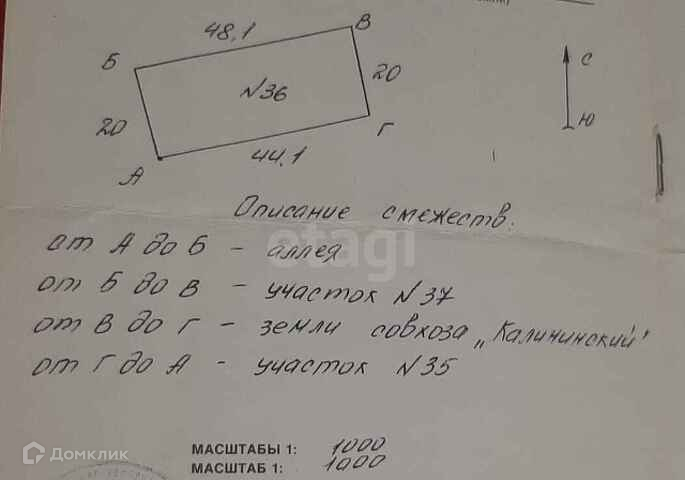 48,1
В
Б
20
N36
20
С
Ю
44,1
Г
А
Описание смежеств:
от А до Б - аллея
etagi
от Б до В - участок N37
от В до Г - земли совхоза „Калининский"
от Г до А - участок N35
МАСШТАБЫ 1: 1000
МАСШТАБ 1: 1000
Домклик